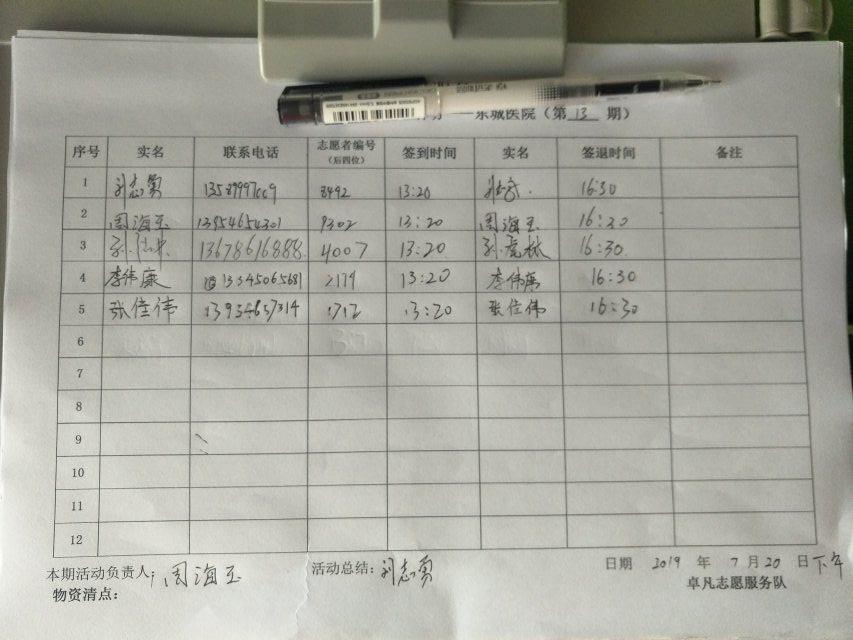 东城医院（第 13 期）
序号 实名 联系电话 志愿者编号（后四位） 签到时间 实名 签退时间 备注
1 刘志勇 8492 13:20 16:30
2 周海玉 13954654301 9302 13:20 周海玉 16:30
3 13678616888 4007 13:20 孙虎林 16:30
4 李伟康 13345065681 2179 13:20 李伟康 16:30
5 张佳伟 13954657314 1712 13:20 张佳伟 16:30
6
7
8
9
10
11
12
本期活动负责人：周海玉 活动总结：刘志勇 日期 2019 年 7 月 20 日下午
物资清点： 卓凡志愿服务队